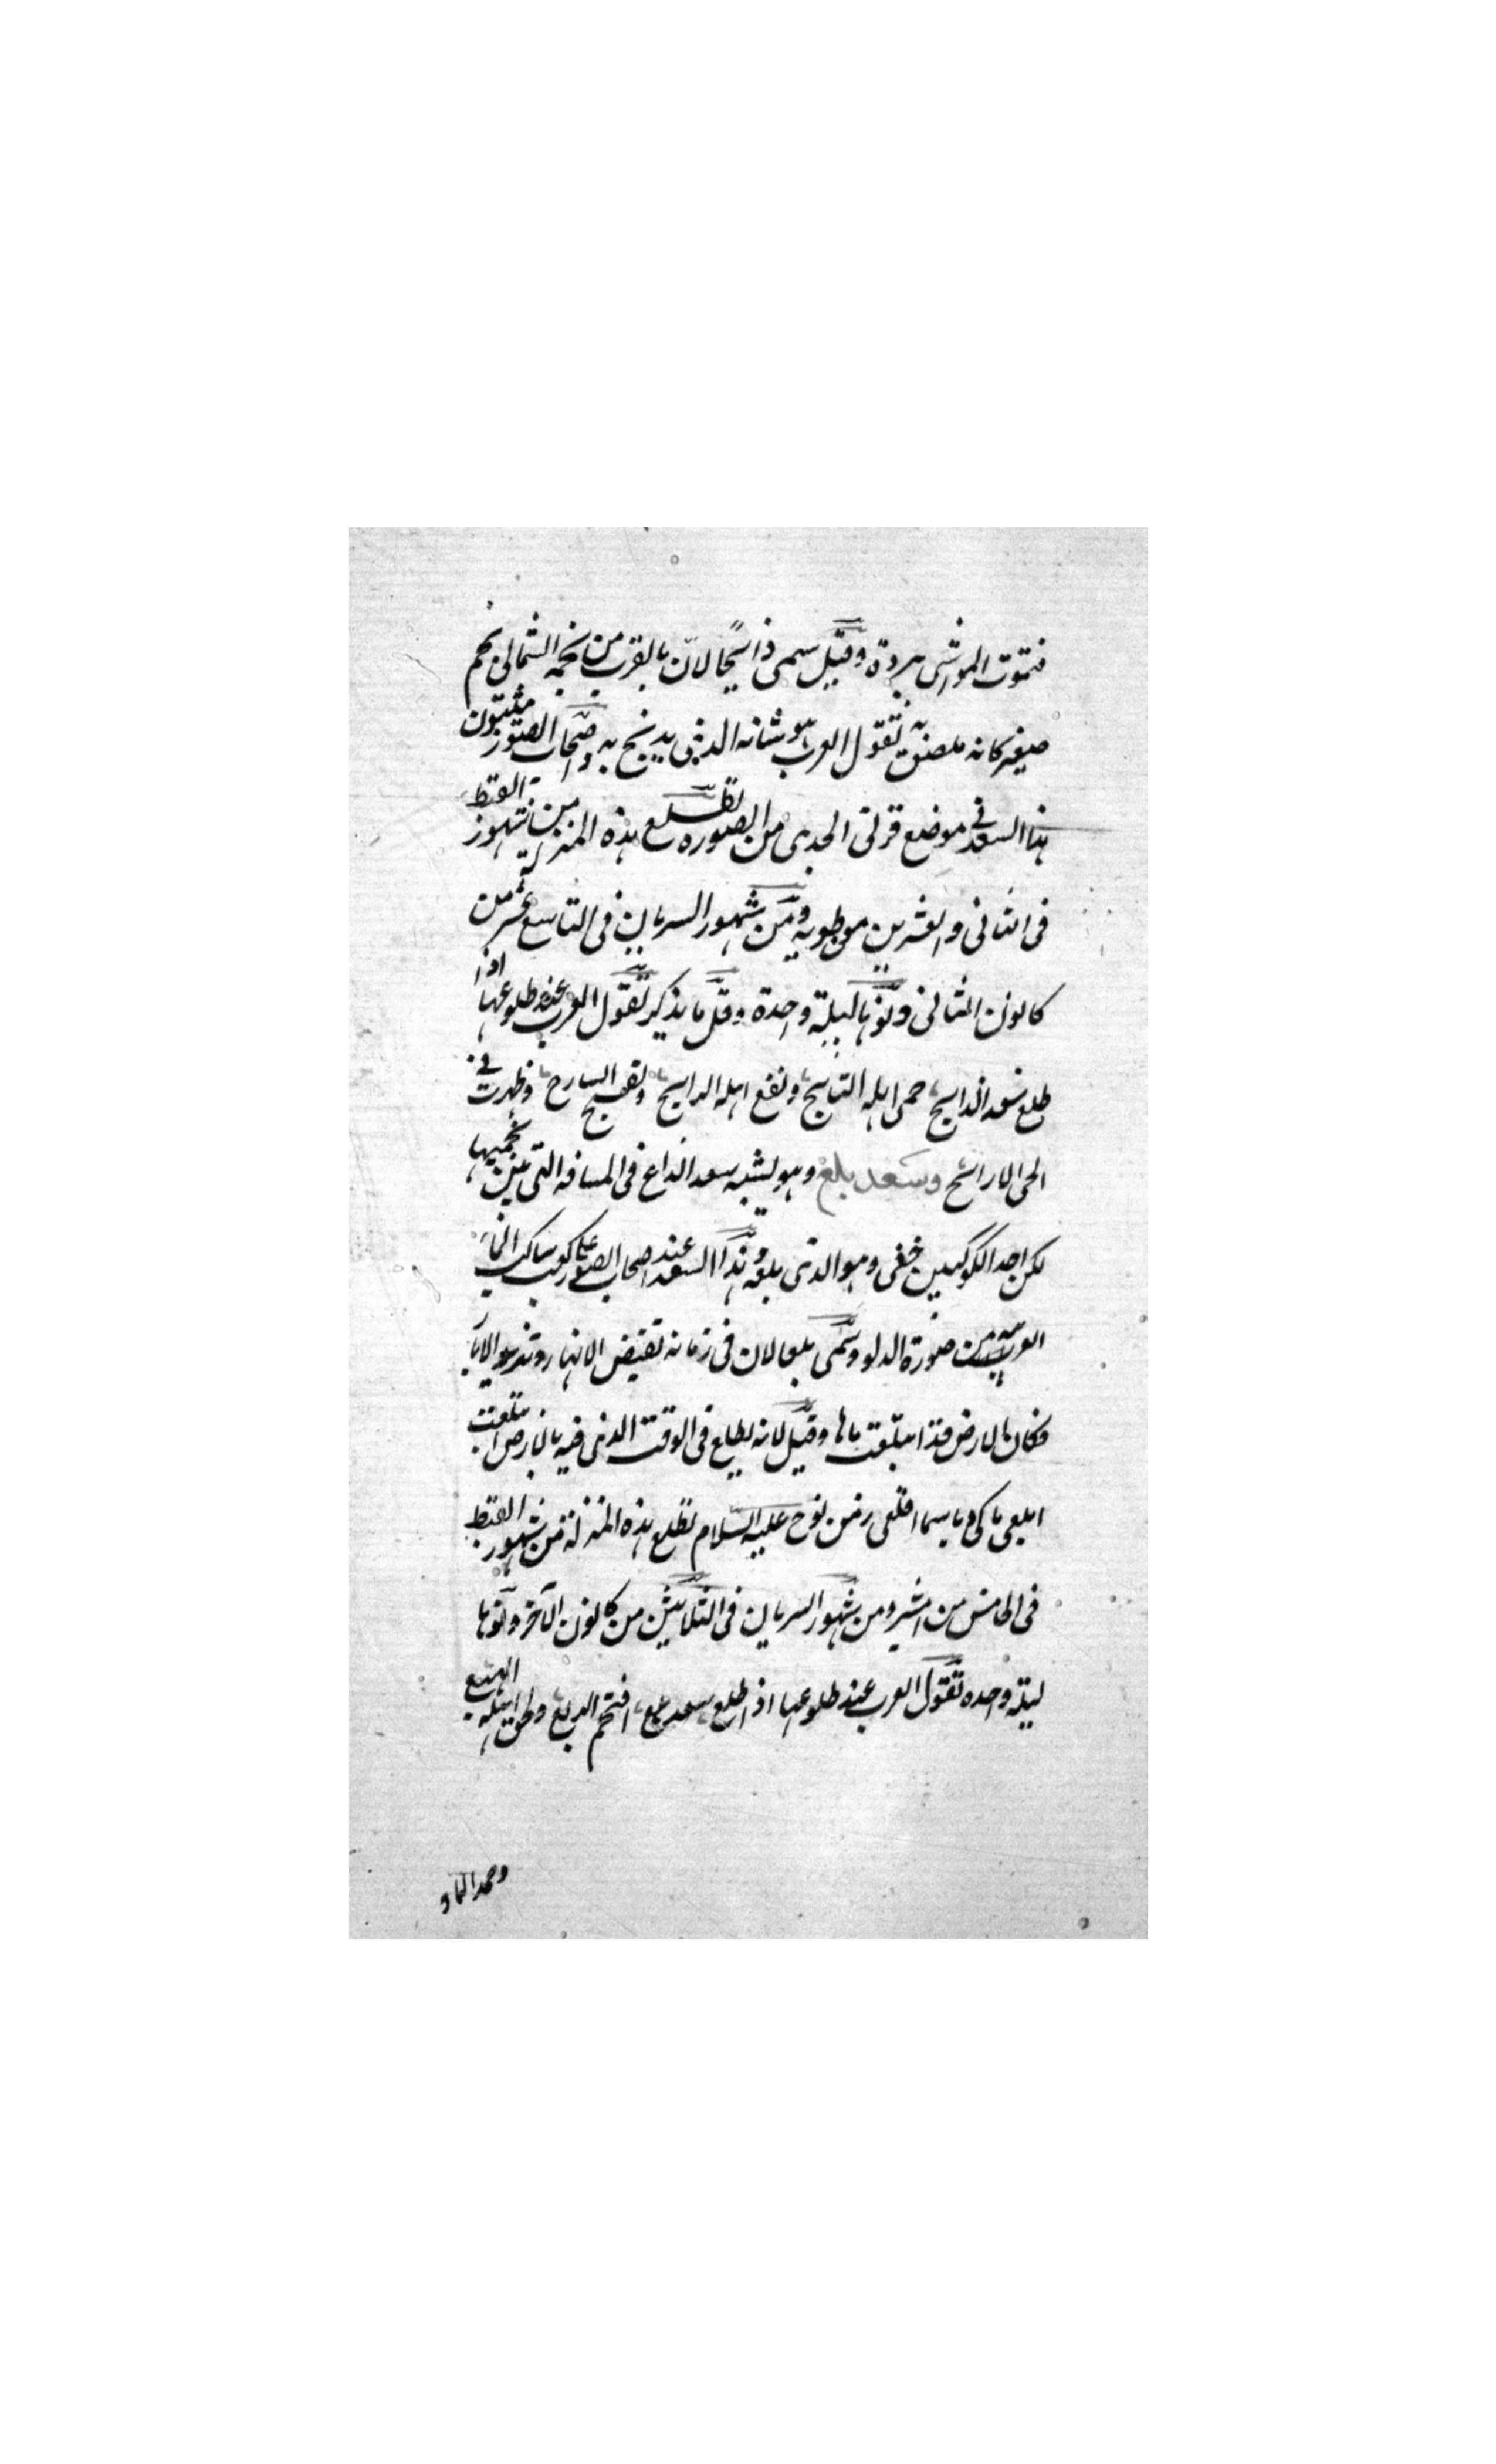 فتموت المواشى ببرده وقيل سمى ذابحا لان بالقرب من نجمه الشمالى نجم
صغير كانه ملصق به تقول العرب هو شاته الذى يذبح به واصحاب الصور مثبتون
هذا السعد فى موضع قرنى الجدى من الصوره تطلع هذه المنزلة من شهور القبط
فى الثانى والعشرين من طوبه ومن شهور السريان فى التاسع عشر من
كانون الثانى ونؤها ليلة واحدة وقل ما يذكر تقول العرب عند طلوعها اذا
طلع سعد الذابح حمى اهله النابح ونفع اهله الرابح وتصبح السارح وظهرت فى
الحى الارائح وسعد بلع وهو يشبه سعد الذابح فى المسافه التى بين نجميها
لكن احد الكوكبين خفى وهو الذى بلعه وهذا السعد عند اصحاب الصور على كوب ساكب الماء
من صورة الدلو وسمى بلعا لان فى زمانه تفيض الانهار الابار
فكان الارض قد ابتلعت ماها وقيل لانه يطلع فى الوقت الذى قيل فيه يا ارض ابلعت
ابلعى ماءك ويا سما اقلعى زمن نوح عليه السلام تطلع هذه المنزلة من شهور القبط
فى الخامس من امشير ومن شهور السريان فى الثلاثين من كانون الآخر ونوءها
ليلة واحده تقول العرب عند طلوعها اذا طلع سعد بلع اقتحم الربع ولحق اهله الهبع
وصيد المار